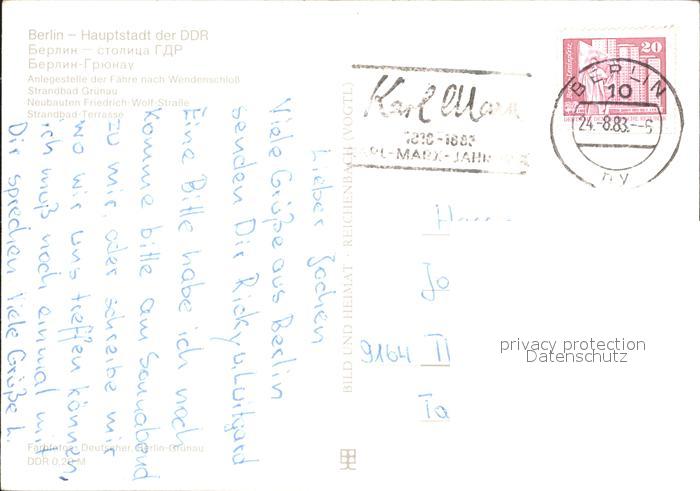 Berlin – Hauptstadt der DDR
Берлин – столица ГДР
Берлин-Грюнау
Anlegestelle der Fähre nach Wendenschloß
Strandbad Grünau
Neubauten Friedrich-Wolf-Straße
Strandbad-Terrasse
Lieber Jochen
Viele Grüße aus Berlin
senden Dir Ricky u. Luitgard
Eine Bitte habe ich noch
komme bitte am Sonnabend
zu mir, oder schreibe mir
wo wir uns treffen können,
ich muß noch einmal mit
Dir sprechen Viele Grüße L.
Farbfotos: Deutscher, Berlin-Grünau
DDR 0,20 M
BILD UND HEIMAT · REICHENBACH (VOGTL)
Karl Marx
1818-1883
KARL-MARX-JAHR
20
BERLIN
10
24.-8.83.--6
Jo
9164 II
privacy protection
Datenschutz